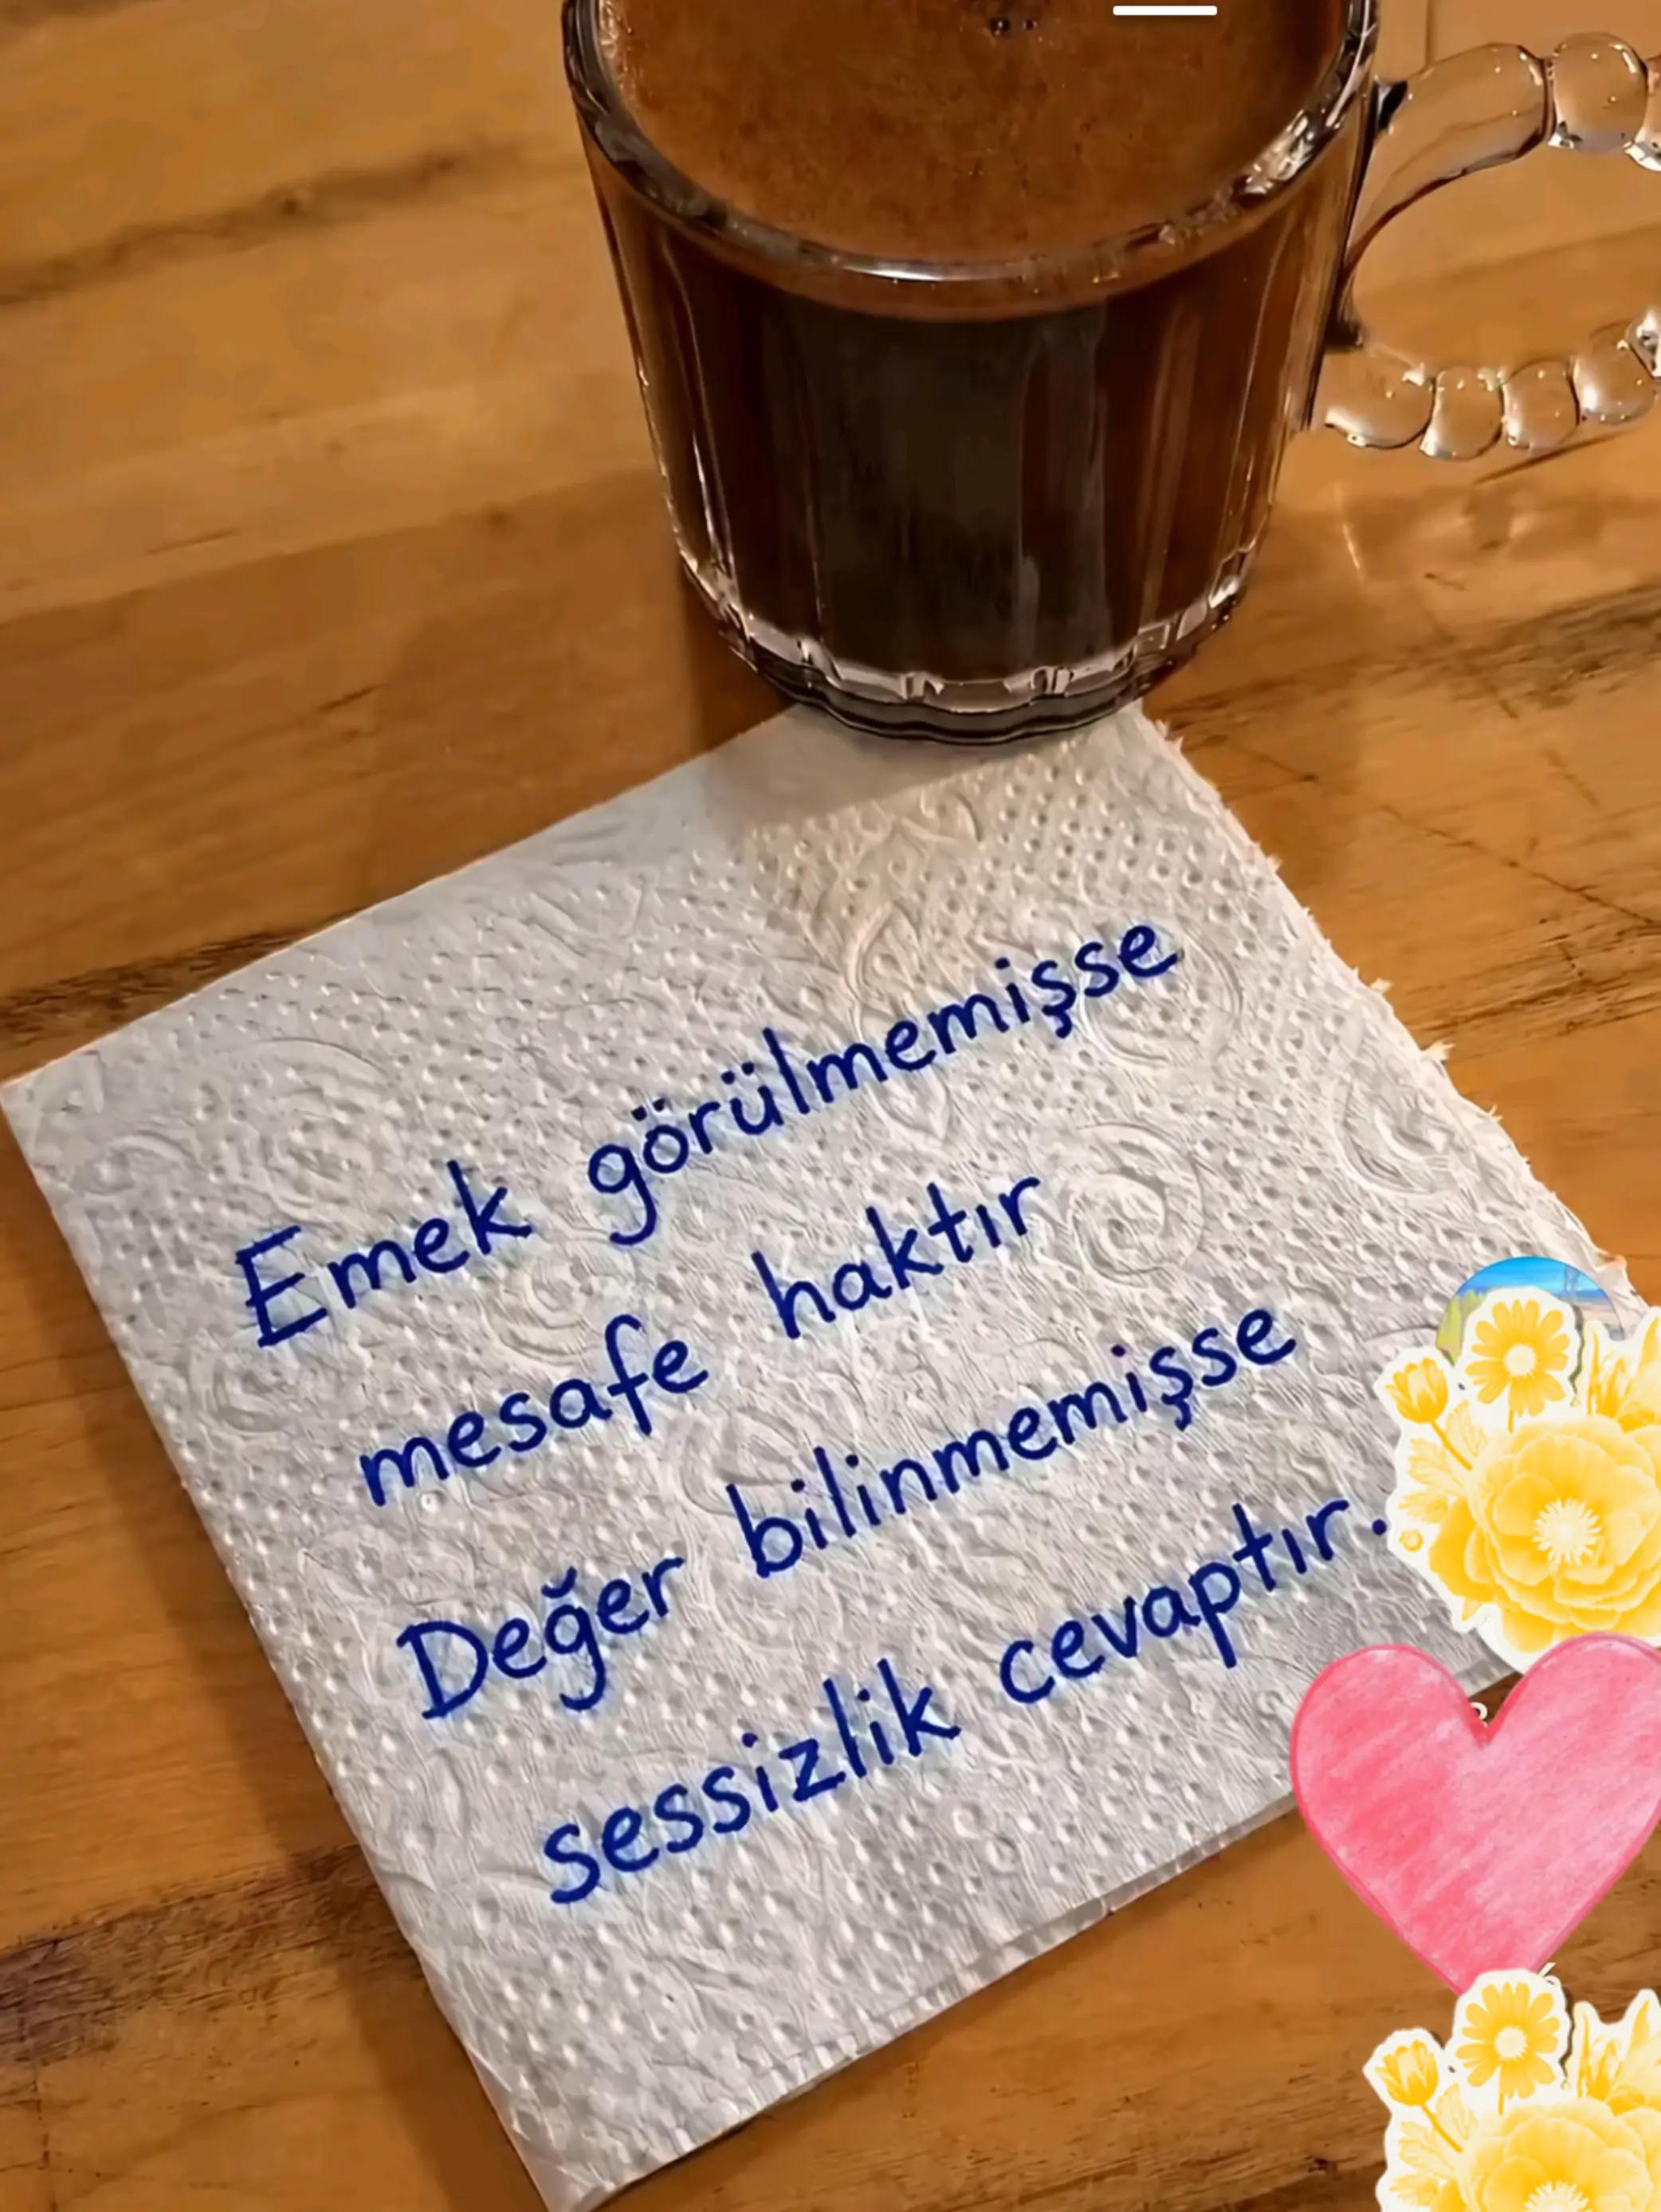 Emek görülmemişse
mesafe haktır
Değer bilinmemişse
sessizlik cevaptır.